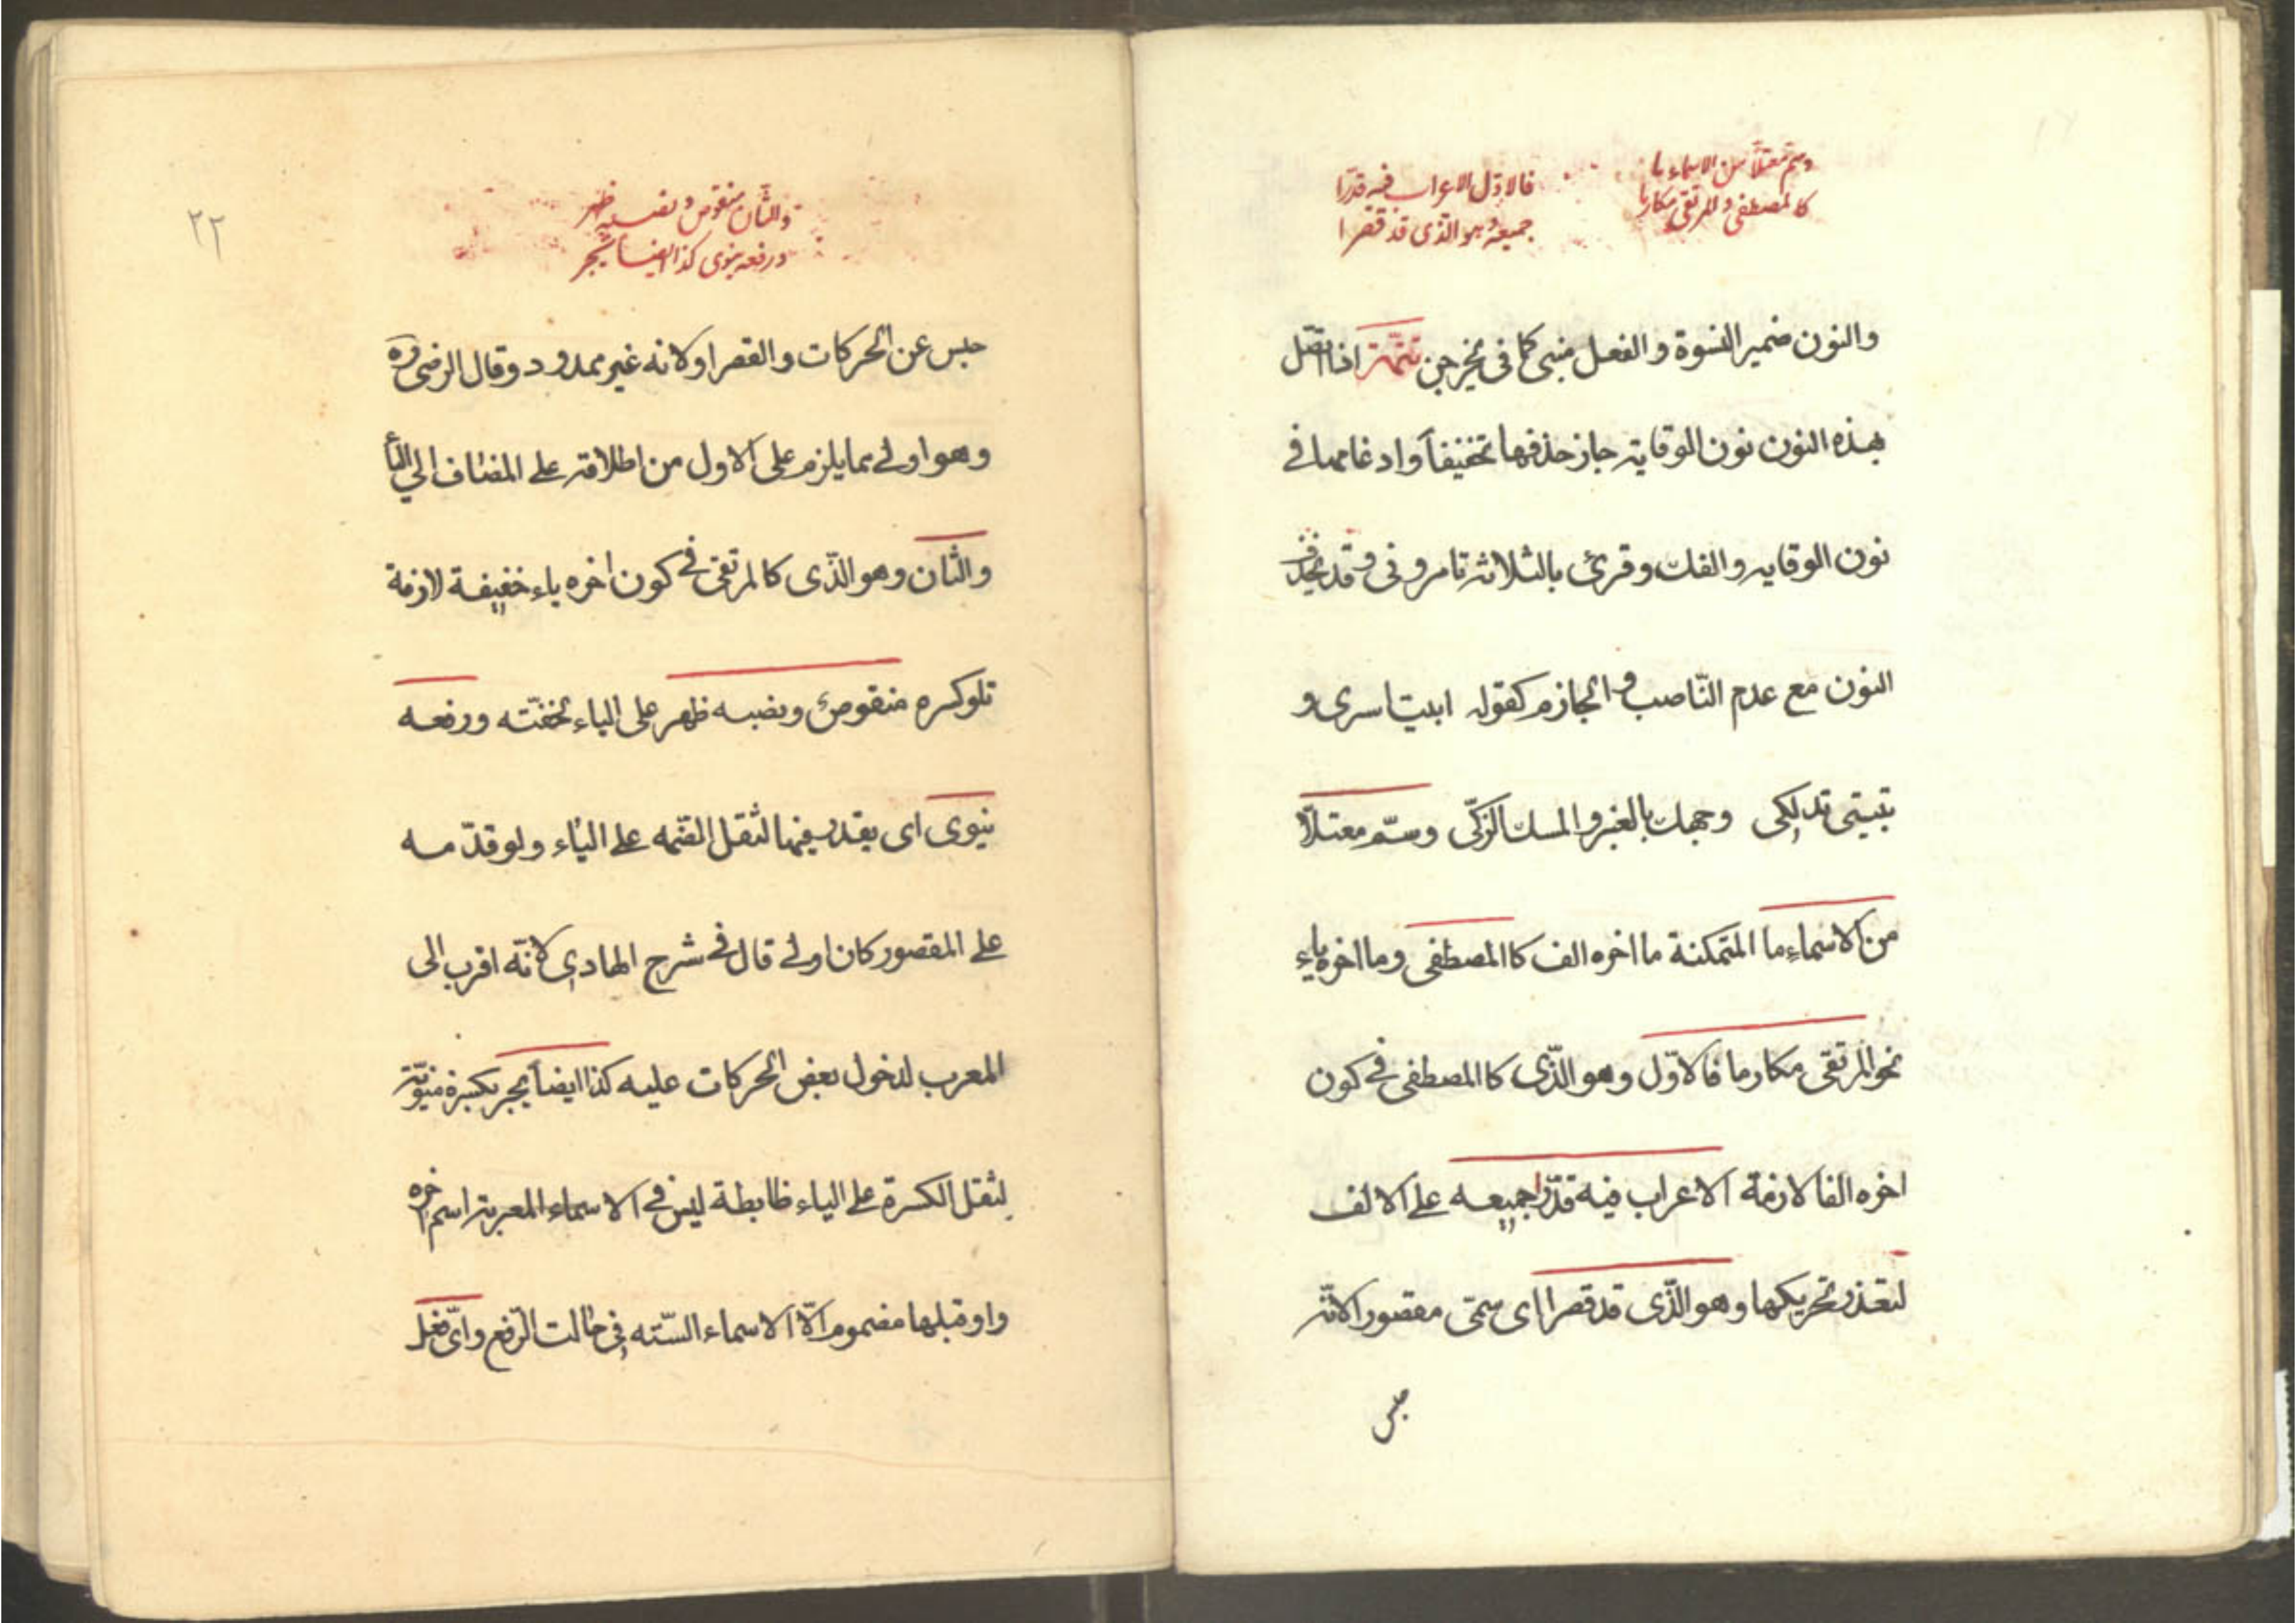 وسم معتلا من الاسماء ما
كالمصطفى والمرتقى مكارما
فالاول الاعراب فيه قدرا
جميعه وهو الذى قد قصرا
والنون ضمير النسوة والفعل مبنى كما فى يخرجن تتمة اذا اتصل
بهذه النون نون الوقاية جاز حذفها تخفيفاً وادغامها في
نون الوقايه والفك وقرئ بالثلاثة تامرونى وقد يحذف
النون مع عدم النّاصب والجازم كقوله ابيت اسرى و
تبيتى تدلكى وجهك بالعنبر والمسك الزكّى وسمّ معتلاً
من الاسماءِ ما المتمكنة ما اخره الف كاالمصطفى وما اخره ياء
نحو المرتقى مكارما فالاوّل وهو الذّى كاالمصطفى في كون
اخره الفا لازمة الاعراب فيه قدّرا جميعه على الالف
لتعذر تحريكها وهو الذّى قد قصرا اى سمّى مقصورا لانّه
حبس
٢٢
والثان منقوص ونصبه ظهر
ورفعه ينوى كذا ايضا يجر
حبس عن الحركات والقصر او لانه غير ممدود وقال الرضى ره
وهو اولى مما يلزم على الاول من اطلاقه على المضاف الى اليا
والثان وهو الذّى كالمرتقى في كون اخره ياء خفيفة لازمة
تلو كسره منقوص ونصبه ظهر على الياء لخفّته ورفعه
ينوى اى يقدر فيها لثقل الضّمه على الياء ولو قدّمه
على المقصور كان اولى قال في شرح الهادى لانّه اقرب الى
المعرب لدخول بعض الحركات عليه كذا ايضاً يجر بكسرة منويّة
لثقل الكسرة على الياء ظابطة ليس في الاسماء المعربة اسم اخره
واو قبلها مضموم الّا الاسماء السّته فى حالت الرّفع واىّ فعل